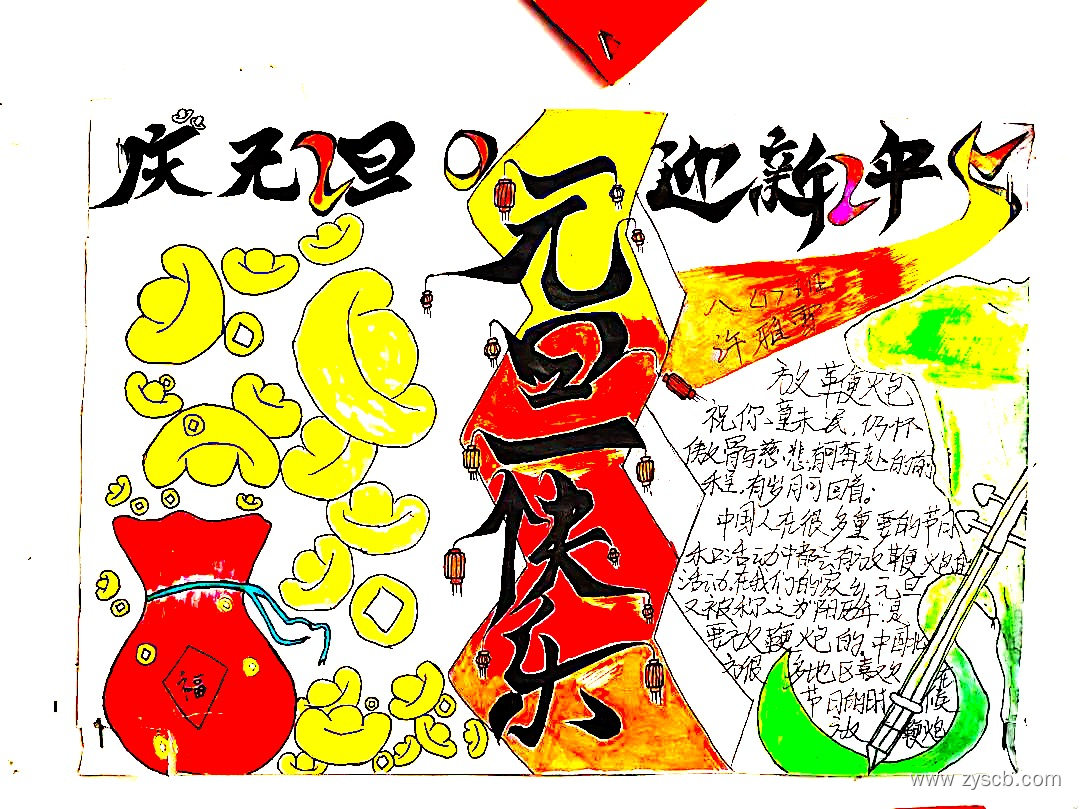 庆元旦
迎新年
元旦快乐
八(1)班
许雅雯
放鞭炮
祝你堇未泯,仍怀
傲骨与慈悲,有可奔赴的前
程,有岁月可回首。
中国人在很多重要的节日
和活动中都会有放鞭炮的
活动,在我们的家乡,元旦
又被称之为"阳历年"是
要放鞭炮的,中国北
方很多地区喜欢在
节日的时候
放鞭炮
福
www.zyscb.com